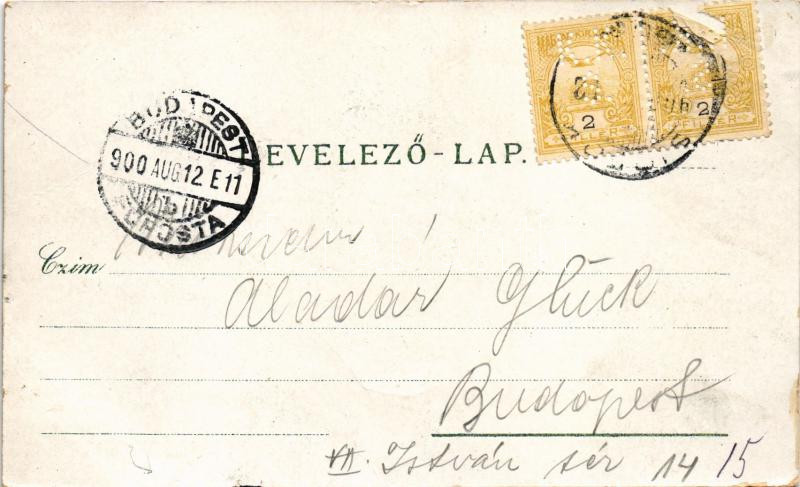 MAGYAR KIR. POSTA
2 2
FILLÉR
BUDAPEST
900 AUG 12 E 11
EVELEZŐ-LAP.
Czim
Aladár Glück
Budapest
VII. István tér 14 15